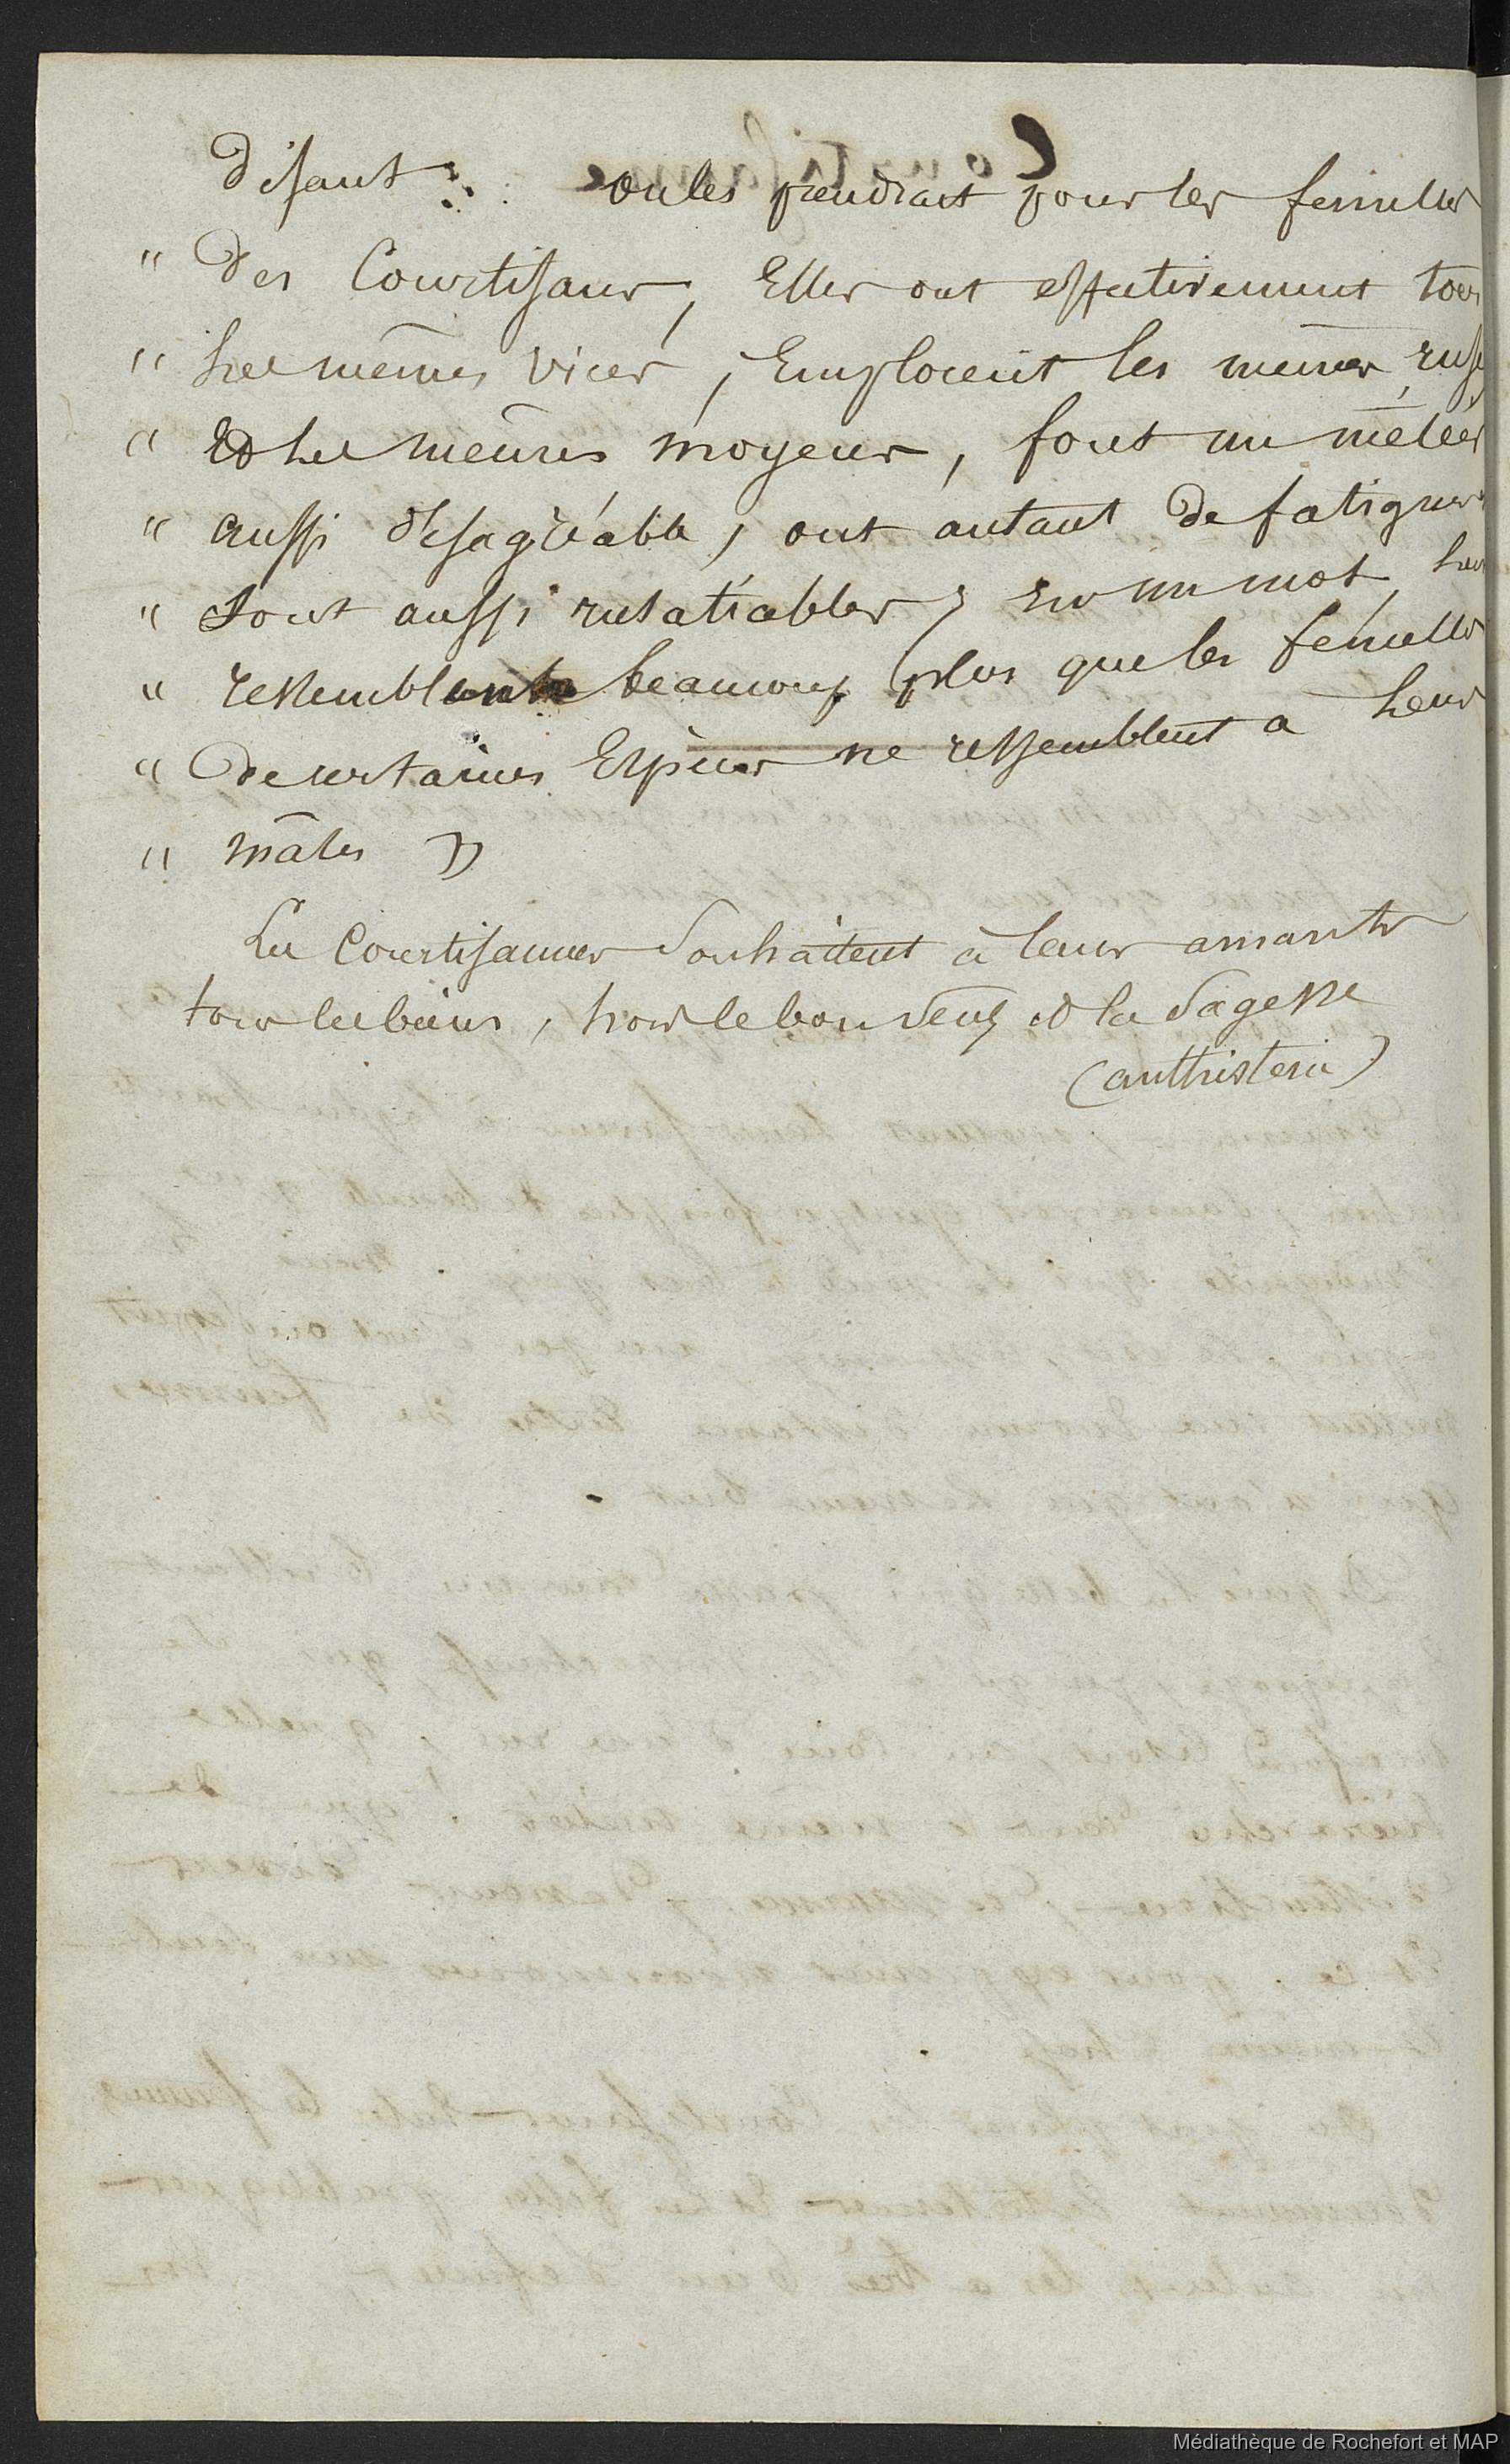 Disant : on les prendrait pour les femelles
" Des Courtisans, Elles ont effectivement tous
" Les mêmes vices, Emploient les mêmes ruses
" Et Les mêmes moyens, font un métier
" aussi désagréable, ont autant De fatigues
" Sont aussi insatiables ; En un mot Leur
" ressemblent beaucoup plus que les femelles
" De certaines Espèces ne ressemblent à Leurs
" mâles "
Les Courtisannes Souhaitent à leurs amants
tous les biens, hors le bon Sens et la Sagesse
(antthisteni)
Médiathèque de Rochefort et MAP